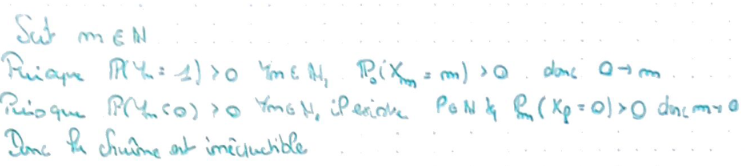 Soit m ∈ N
Puisque P(Yn = 1) > 0 ∀n ∈ N, P₀(Xm = m) > 0 donc 0 → m
Puisque P(Yn < 0) > 0 ∀n ∈ N, il existe p ∈ N tq Pm(Xp = 0) > 0 donc m → 0
Donc la chaîne est irréductible